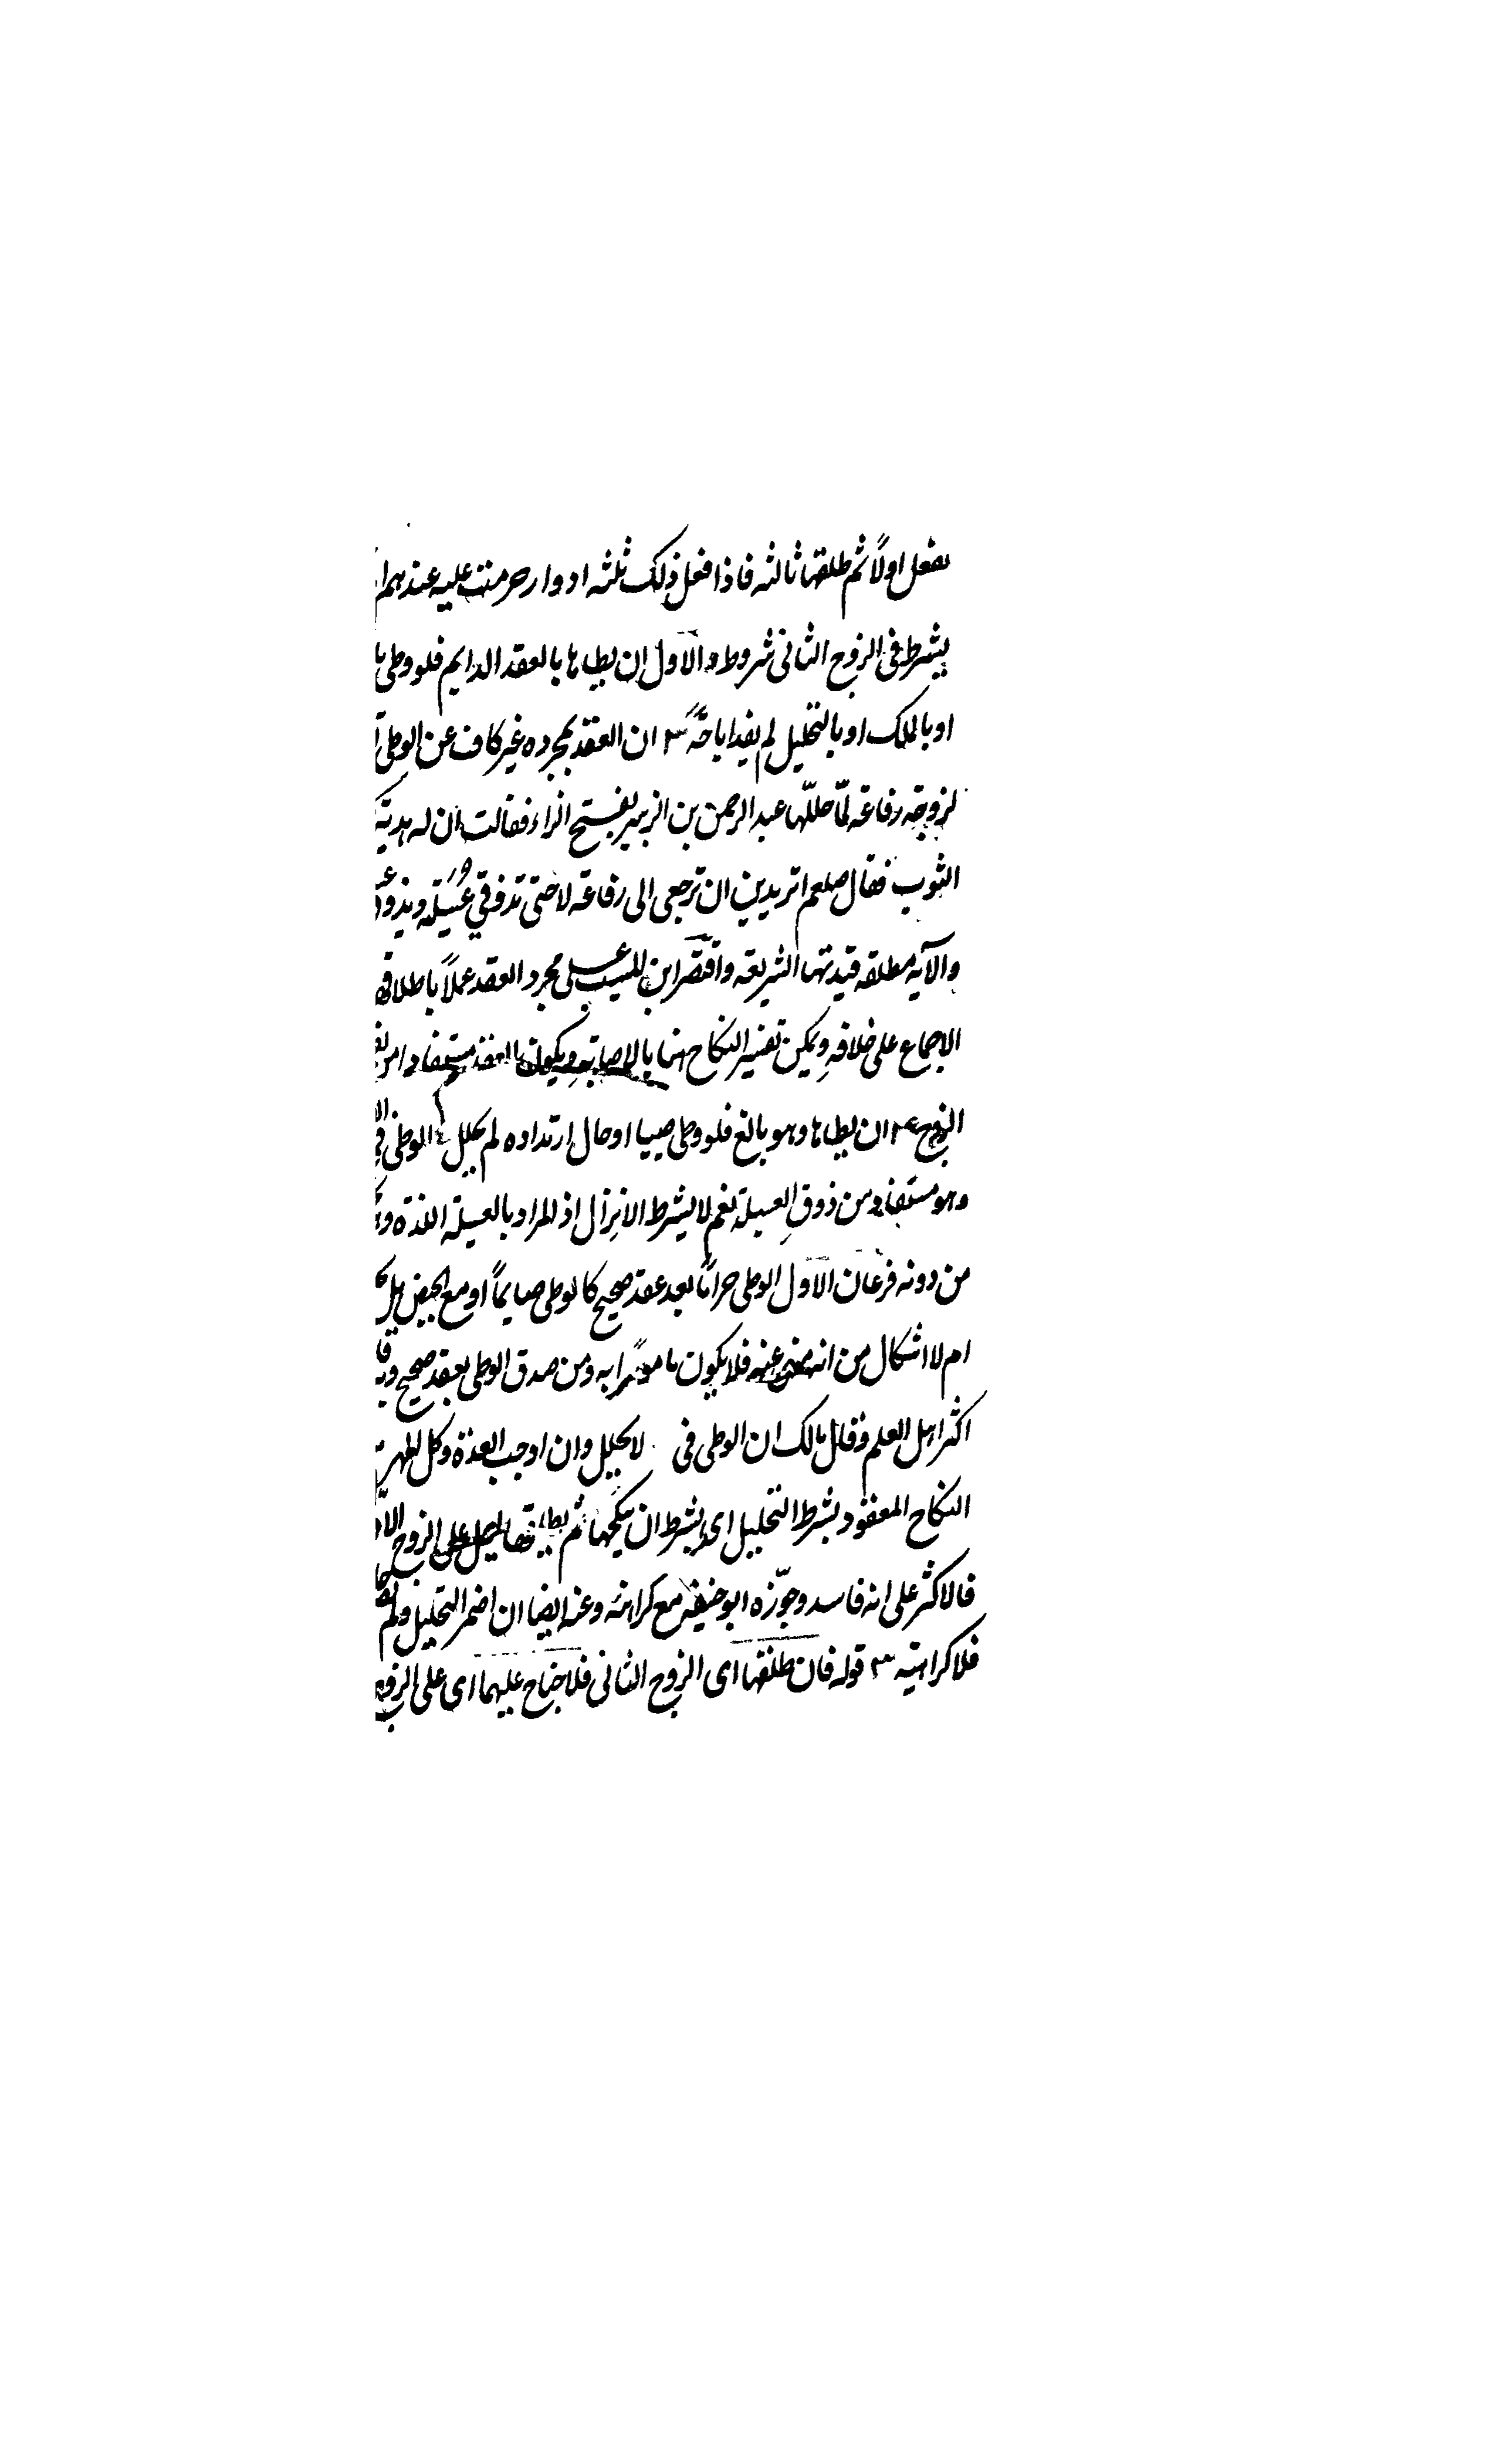 يفعل اولًا ثم طلقها ثالثه فاذا فعل ذلك ثلثه ادوار حرمت عليه عندهم
يشرط فى الزوج الثانى شروط الاول ان يطاها بالعقد الدايم فلو وطى
او بالملك او بالتحليل لم يفد اباحةً ان العقد بمجرده غير كاف عن الوطى
لزوجه رفاعه لمّا حللّها عبد الرحمن بن الزبير بفتح الزاء فقالت ان له هدبة
الثوب فقال صلعم اتريدين ان ترجعى الى رفاعه لا حتى تذوقي عُسَيلته ويذوق
والآيه مطلقه قيدتها الشريعه واقتصر ابن المسيب على مجرد العقد عملاً باطلاقها
الاجماع على خلافهِ ويمكن تفسير النكاح هنا بالاصابة ويكون العقد مستفادا من
الزوج ان يطاها وهو بالغ فلو وطى صبيا او حال ارتداده لم يحلل الوطى فى
وهو مستفاد من ذوق العسيلة نعم لا يشرط الانزال اذ المراد بالعسيلة اللذة
من دونه فرعان الاول الوطى حرامًا بعد عقد صحيح كالوطى صايماً او مع الحيض هل
ام لا اشكال من انه منهى عنه فلا يكون مامورًا به ومن صدق الوطى بعقد صحيح
اكثر اهل العلم وقال مالك ان الوطى فى لا يحلل وان اوجب العدة وكل المهر
النكاح المعقود بشرط التحليل اى بشرط ان ينكحها ثم يطلقها ليحل على الزوج
فالاكثر على انه فاسد وجوّزه ابو حنيفه مع كراهته وعنه ايضا ان اضمر التحليل ولم
فلا كراهية قوله فان طلقها اى الزوج الثانى فلا جناح عليهما اى على الزوج